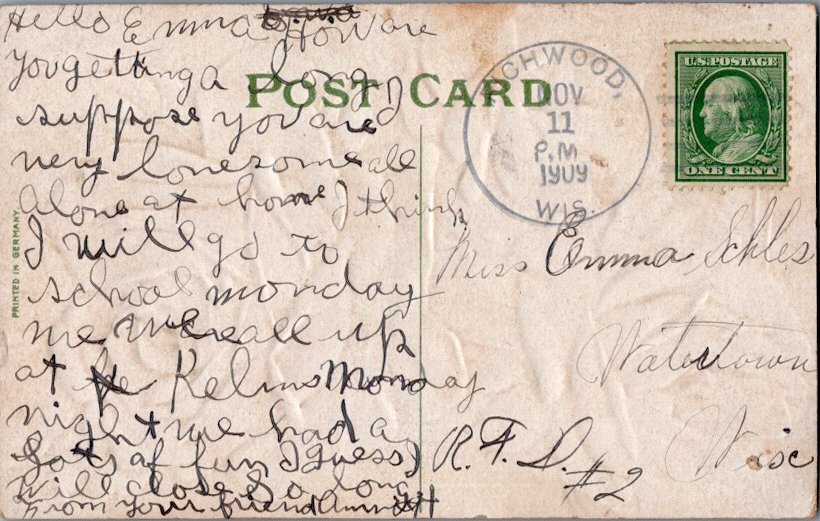 Hello Emma How are
You getting a long I
suppose you are
very lonesome all
alone at home I think
I will go to
school monday
me we are all up
at Kelms Monday
night we had a
Lots of fun I guess I
will close So long
From your friend
POST CARD
PRINTED IN GERMANY
CHWOOD,
NOV
11
P.M
1909
WIS.
U.S. POSTAGE
ONE CENT
Miss Emma Schles
Watertown
Wisc
R.F.D. #2